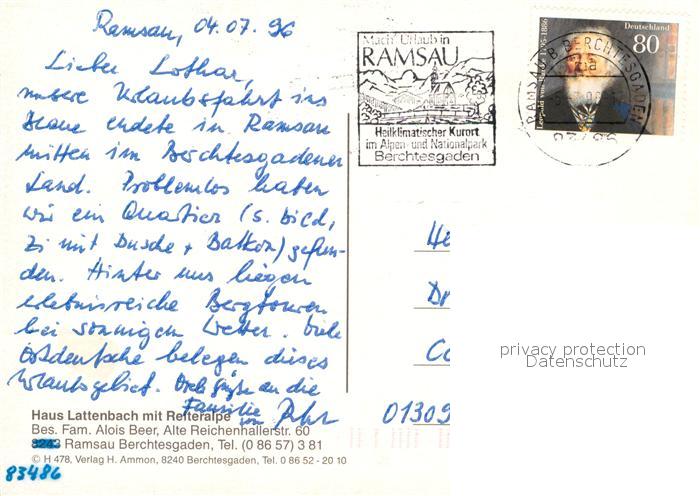 Ramsau, 04.07.96
Lieber Lothar,
unsere Urlaubsfahrt ins
Blaue endete in Ramsau
mitten im Berchtesgadener
Land. Problemlos haben
wir ein Quartier (s. Bild,
Zi mit Dusche + Balkon) gefun-
den. Hinter uns liegen
erlebnisreiche Bergtouren
bei sonnigem Wetter. Viele
Ostdeutsche belegen dieses
Urlaubsgebiet. Viele Grüße an die
Familie von
Haus Lattenbach mit Reiteralpe
Bes. Fam. Alois Beer, Alte Reichenhallerstr. 60
8243 Ramsau Berchtesgaden, Tel. (0 86 57) 3 81
© H 478, Verlag H. Ammon, 8240 Berchtesgaden, Tel. 0 86 52 - 20 10
83486
Mach' Urlaub in
RAMSAU
Heilklimatischer Kurort
im Alpen- und Nationalpark
Berchtesgaden
Deutschland
80
Leopold von Ranke 1795-1886
RAMSAU B BERCHTESGADEN
He
Dr
Co
01309
privacy protection
Datenschutz